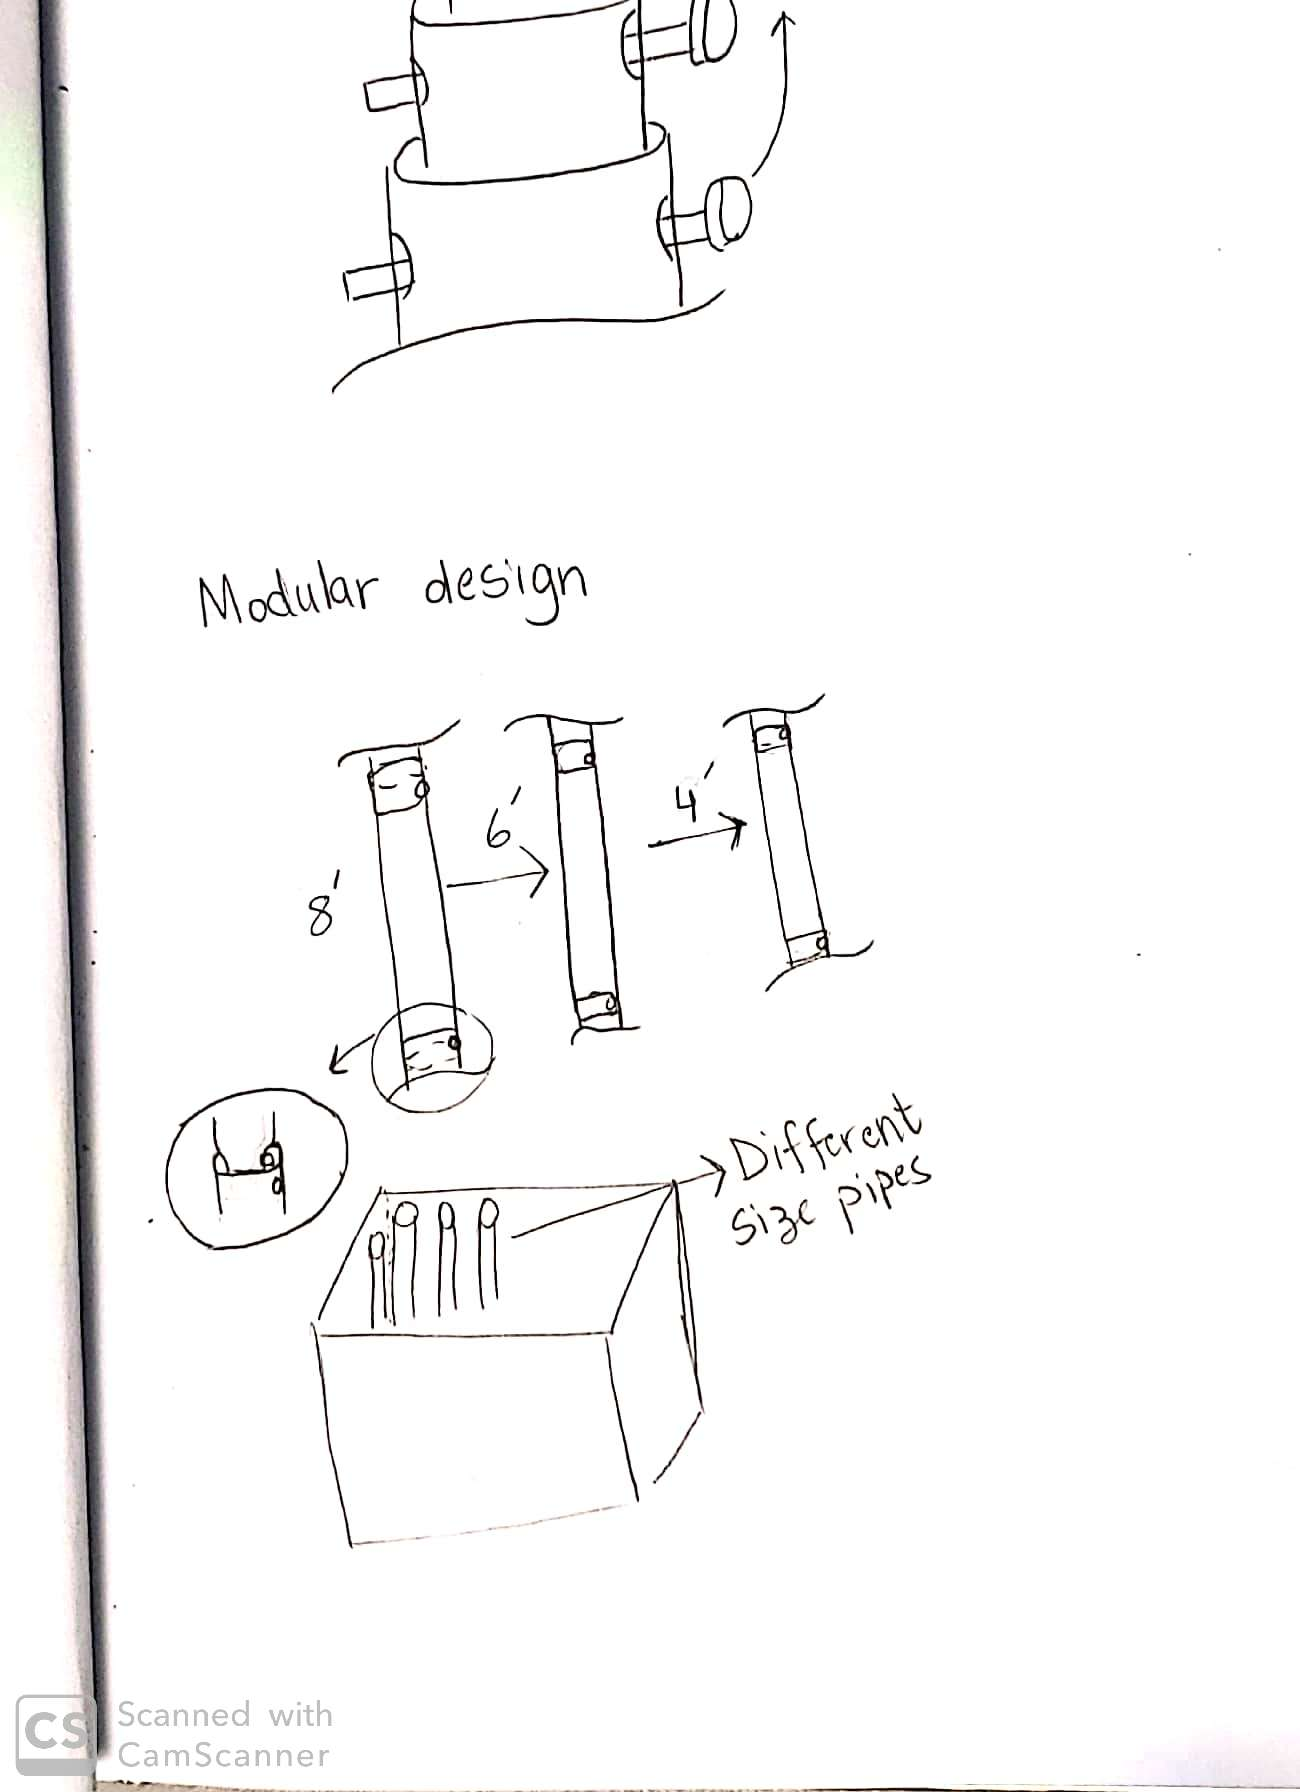 Modular design
8'
6'
4'
Different
size pipes
CS
Scanned with
CamScanner